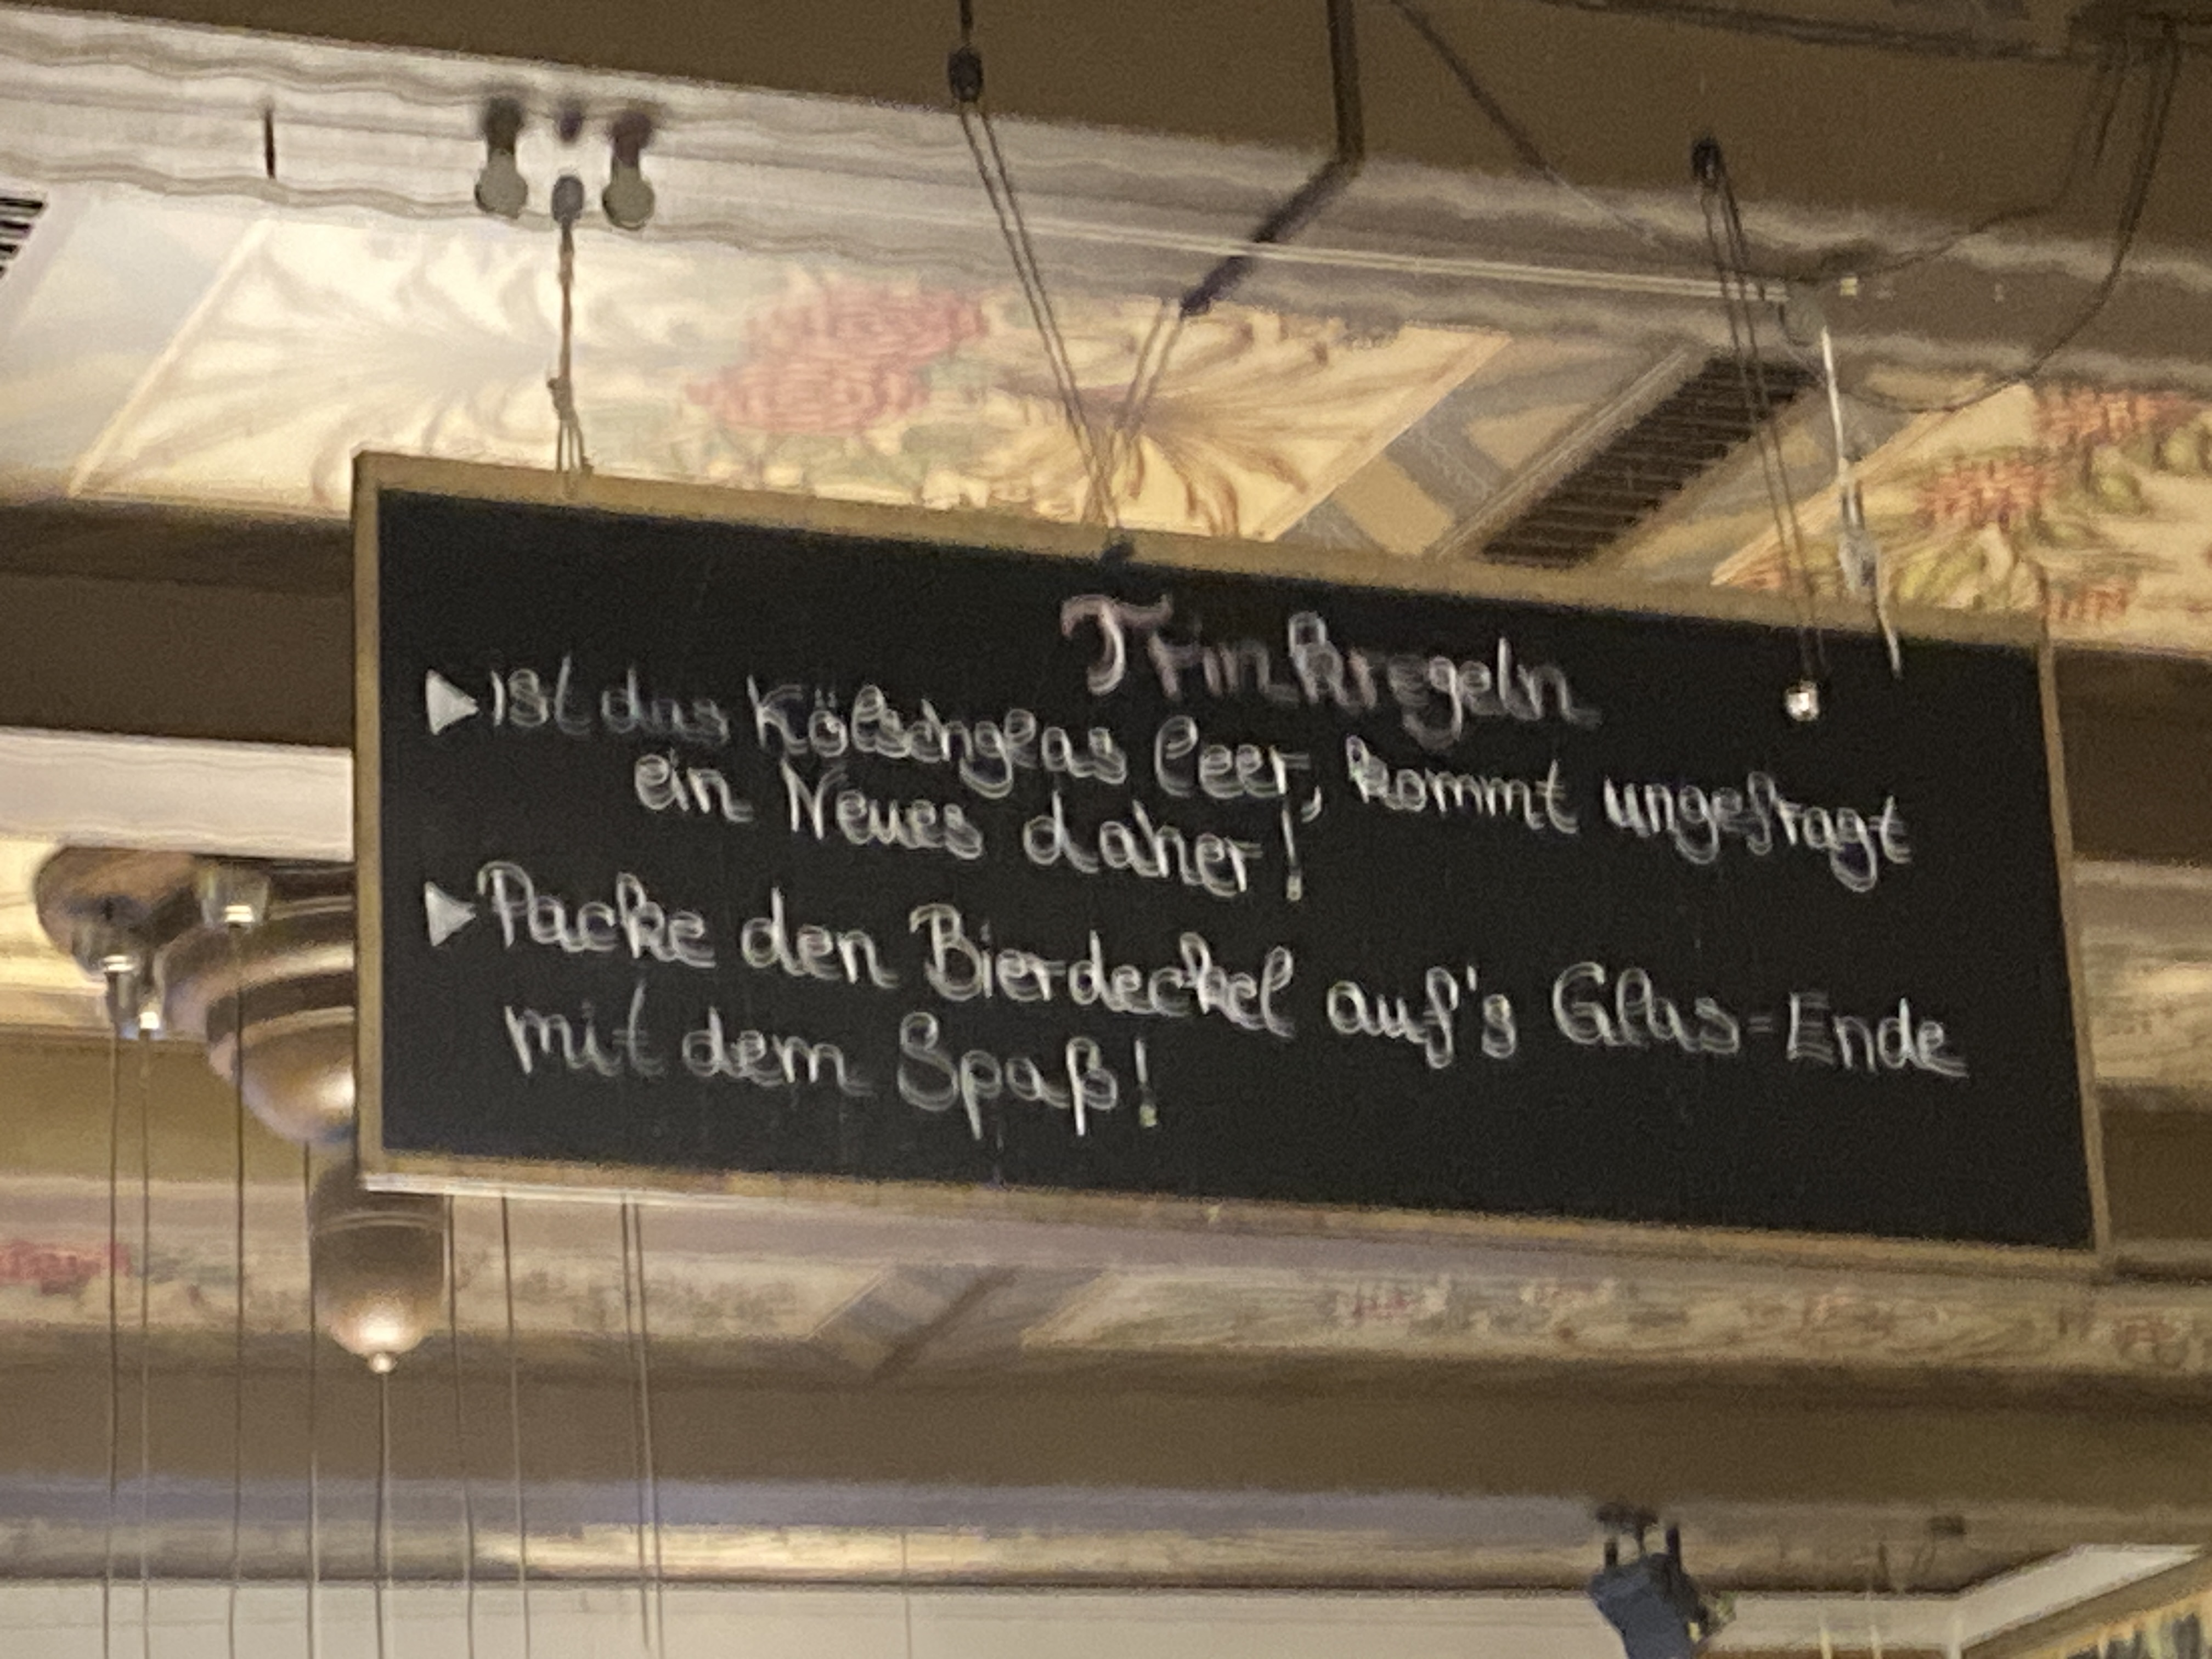 Trinkregeln
▶ Ist das Kölschglas leer, kommt ungefragt
ein Neues daher!
▶ Packe den Bierdeckel auf's Glas-Ende
mit dem Spaß!